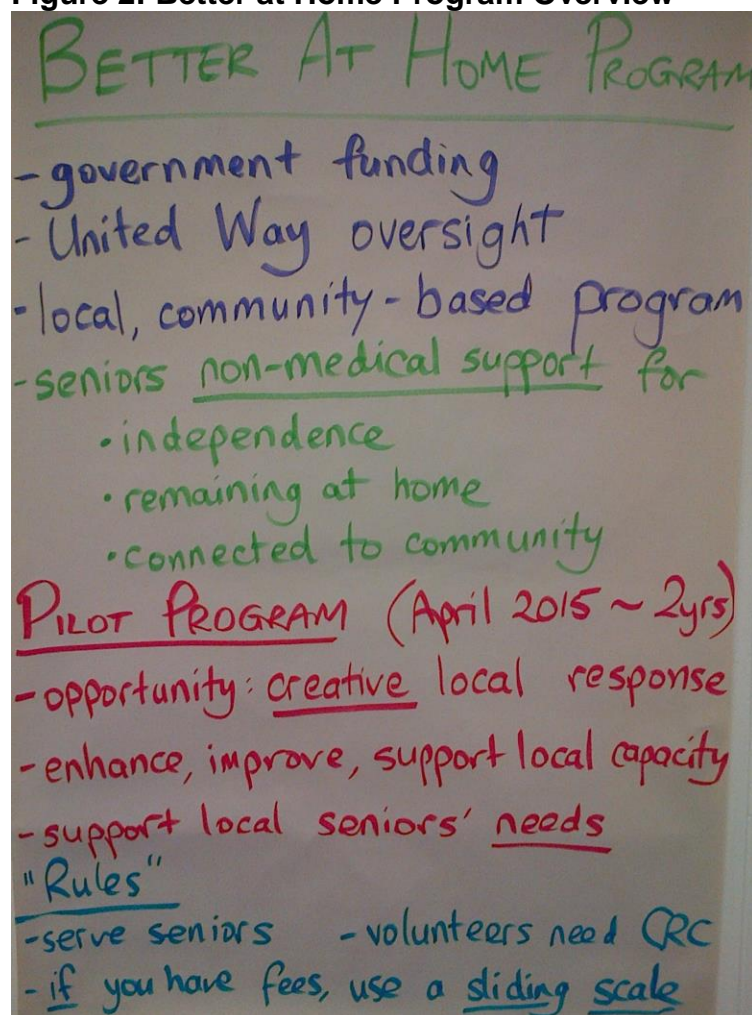 Figure 2: Better at Home Program Overview
BETTER AT HOME PROGRAM
- government funding
- United Way oversight
- local, community-based program
- seniors non-medical support for
• independence
• remaining at home
• connected to community
PILOT PROGRAM (April 2015 ~ 2yrs)
- opportunity: creative local response
- enhance, improve, support local capacity
- support local seniors' needs
"Rules"
- serve seniors - volunteers need CRC
- if you have fees, use a sliding scale